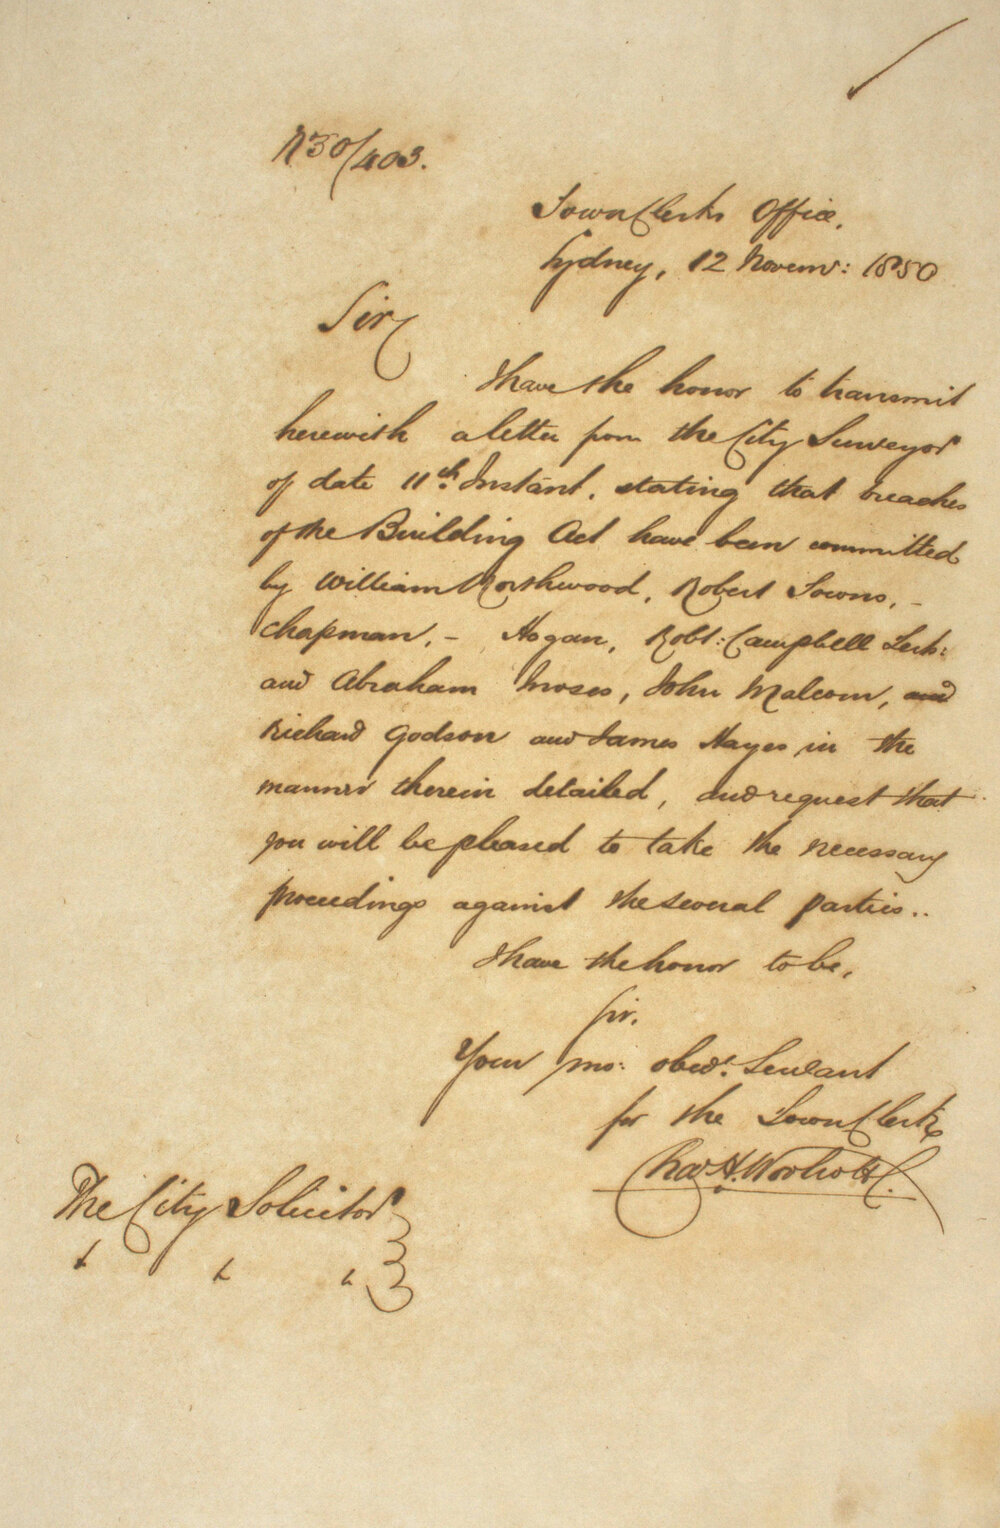 N50/403.
Town Clerks Office,
Sydney, 12 Novemr: 1850
Sir
I have the honor to transmit
herewith a letter from the City Surveyor
of date 11th Instant, stating that breaches
of the Building Act have been committed
by William Northwood, Robert Towns, -
Chapman, - Hogan, Robt: Campbell Terts:
and Abraham Moses, John Malcom, and
Richard Godson and James Hayes in the
manner therein detailed, and request that
you will be pleased to take the necessary
proceedings against the several parties..
I have the honor to be,
Sir,
Your mo: obedt. Servant
for the Town Clerk
Chas H. Woolcott
The City Solicitor